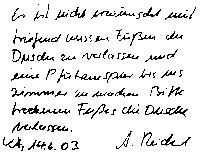 Es ist nicht erwünscht mit
triefend nassen Füßen die
Dusche zu verlassen und
eine Pfützenspur bis ins
Zimmer zu machen. Bitte
trockenen Fußes die Dusche
verlassen.
14.6.03 A. Reichel